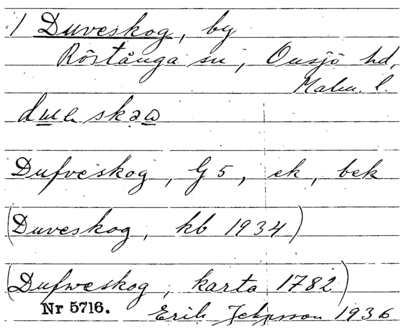 1 Duveskog, by
Röstånga sn, Onsjö hd,
Malm. l.
Dufveskog, G5, ek, bek
(Duveskog, kb 1934)
(Dufweskog, karta 1782)
Nr 5716. Erik 1936